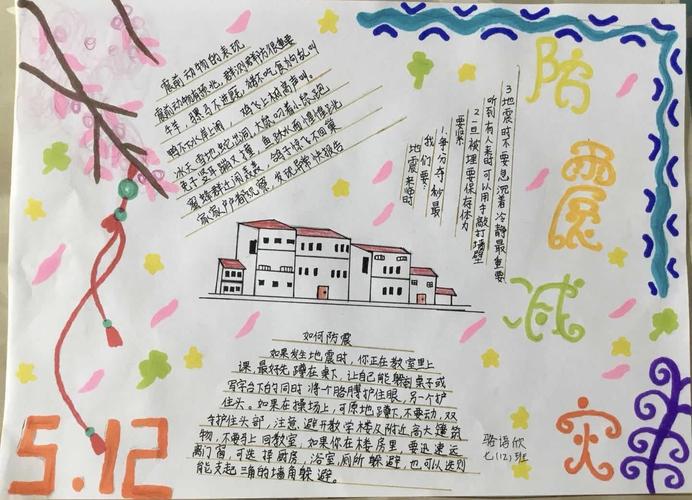 陪震减灾
震前动物的表现
震前动物有预兆,群测群防很重要
牛羊,骡马不进厩,猪不吃食狗乱叫
鸭不下水岸上闹,鸡飞上树高声叫。
冰天雪地蛇出洞,大猫叼着小猫跑
兔子竖耳蹦又撞,鱼跃水面惶惶跳
蜜蜂群迁闹轰轰,鸽子惊飞不回巢
家家户户都观察,发现异常快报告
地震来临时
我们要:
1.争分夺秒最
要紧
2一旦被埋要保存体力
听到有人来时可以用手敲打墙壁
3地震时不要急沉着冷静最重要
如何防震
如果发生地震时,你正在教室里上
课,最好先蹲在桌下,让自己能躲到桌子或
写字台下的同时将个胳膊护住眼,另个护
住头。如果在操场上,可原地蹲下,不要动,双
手护住头部,注意避开教学楼及附近高大建筑
物,不要再上回教室,如果你在楼房里,要迅速远
离门窗,可选择厨房,浴室,厕所躲避,也可以选到
能支起三角的墙角躲避。
骆语欣
七(12)班
5.12